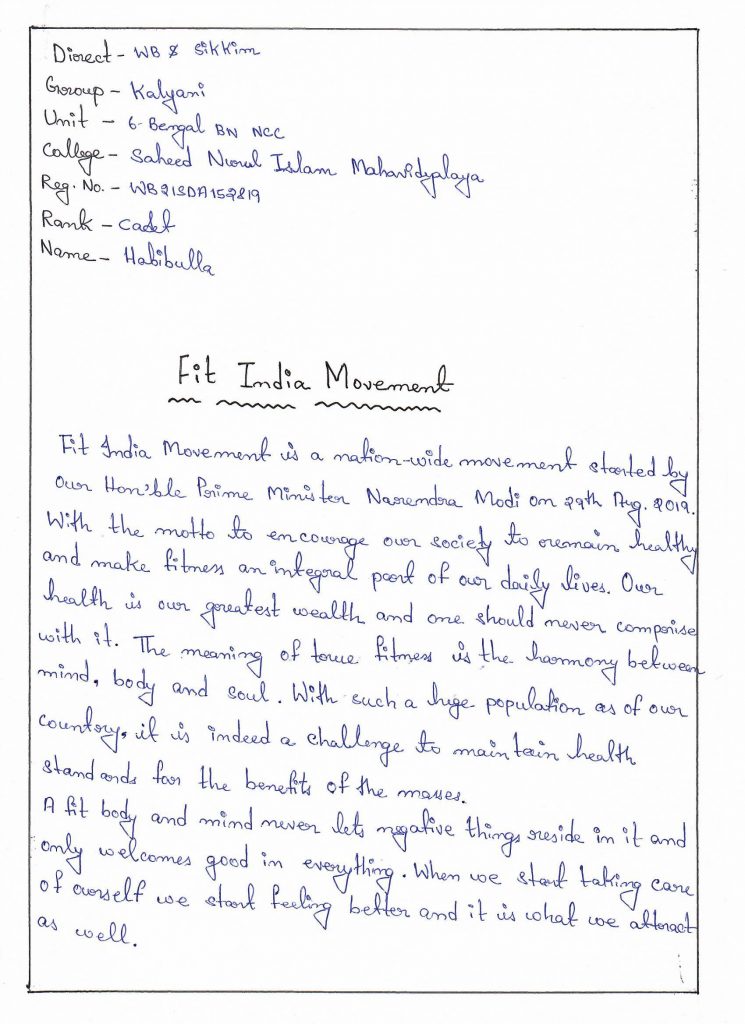 Direct - WB & Sikkim
Group - Kalyani
Unit - 6-Bengal BN NCC
College - Saheed Nurul Islam Mahavidyalaya
Reg. No. - WB21SDA152819
Rank - Cadet
Name - Habibulla
Fit India Movement
Fit India Movement is a nation-wide movement started by
our Hon'ble Prime Minister Narendra Modi on 29th Aug. 2019.
With the motto to encourage our society to remain healthy
and make fitness an integral part of our daily lives. Our
health is our greatest wealth and one should never comporise
with it. The meaning of true fitness is the harmony between
mind, body and soul. With such a huge population as of our
country, it is indeed a challenge to maintain health
standards for the benefits of the masses.
A fit body and mind never lets negative things reside in it and
only welcomes good in everything. When we start taking care
of ourself we start feeling better and it is what we attract
as well.